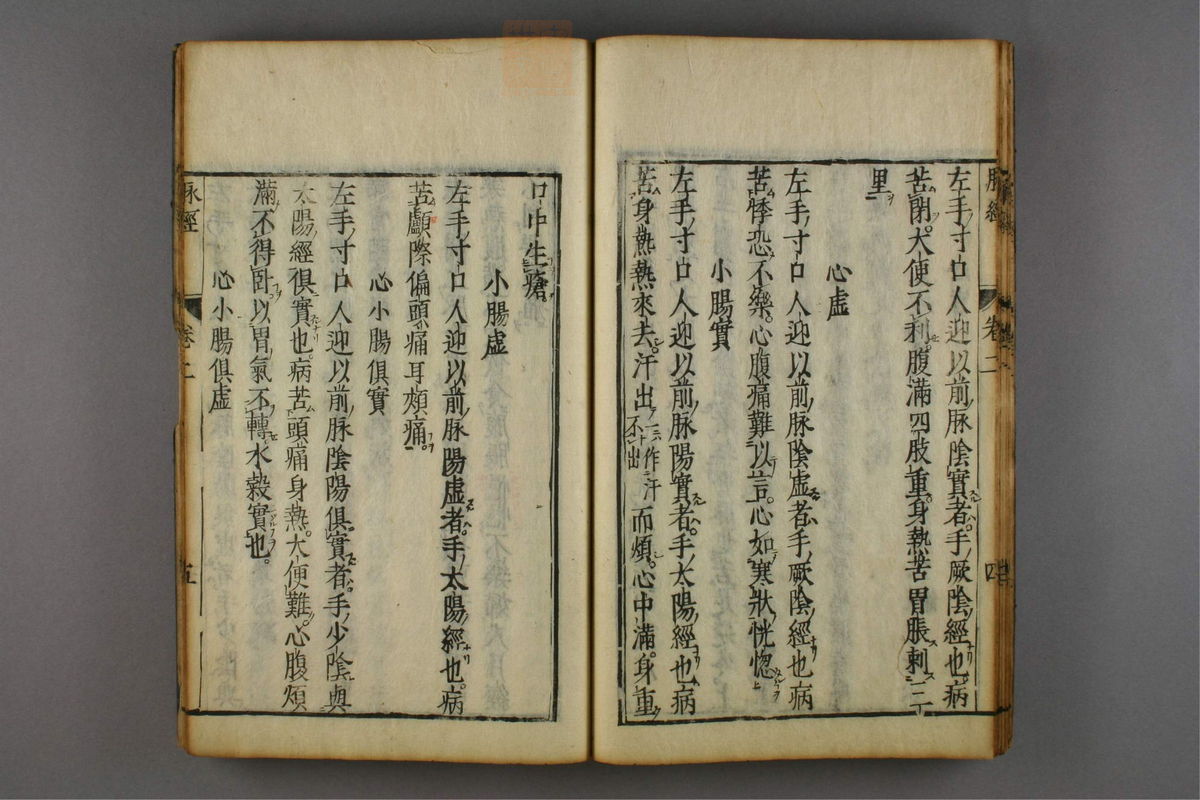 脉經 卷二 四
左手寸口人迎以前脉陰實者手厥陰經也病
苦閉大便不利腹滿四肢重身熱苦胃脹刺三
里
心虛
左手寸口人迎以前脉陰虛者手厥陰經也病
苦悸恐不樂心腹痛難以言心如寒狀恍惚
小腸實
左手寸口人迎以前脉陽實者手太陽經也病
苦身熱熱來去汗出一作汗不出而煩心中滿身重
口中生瘡
小腸虛
左手寸口人迎以前脉陽虛者手太陽經也病
苦顱際偏頭痛耳頰痛
心小腸俱實
左手寸口人迎以前脉陰陽俱實者手少陰與
太陽經俱實也病苦頭痛身熱大便難心腹煩
滿不得卧以胃氣不轉水穀實也
心小腸俱虛
脉經 卷二 五